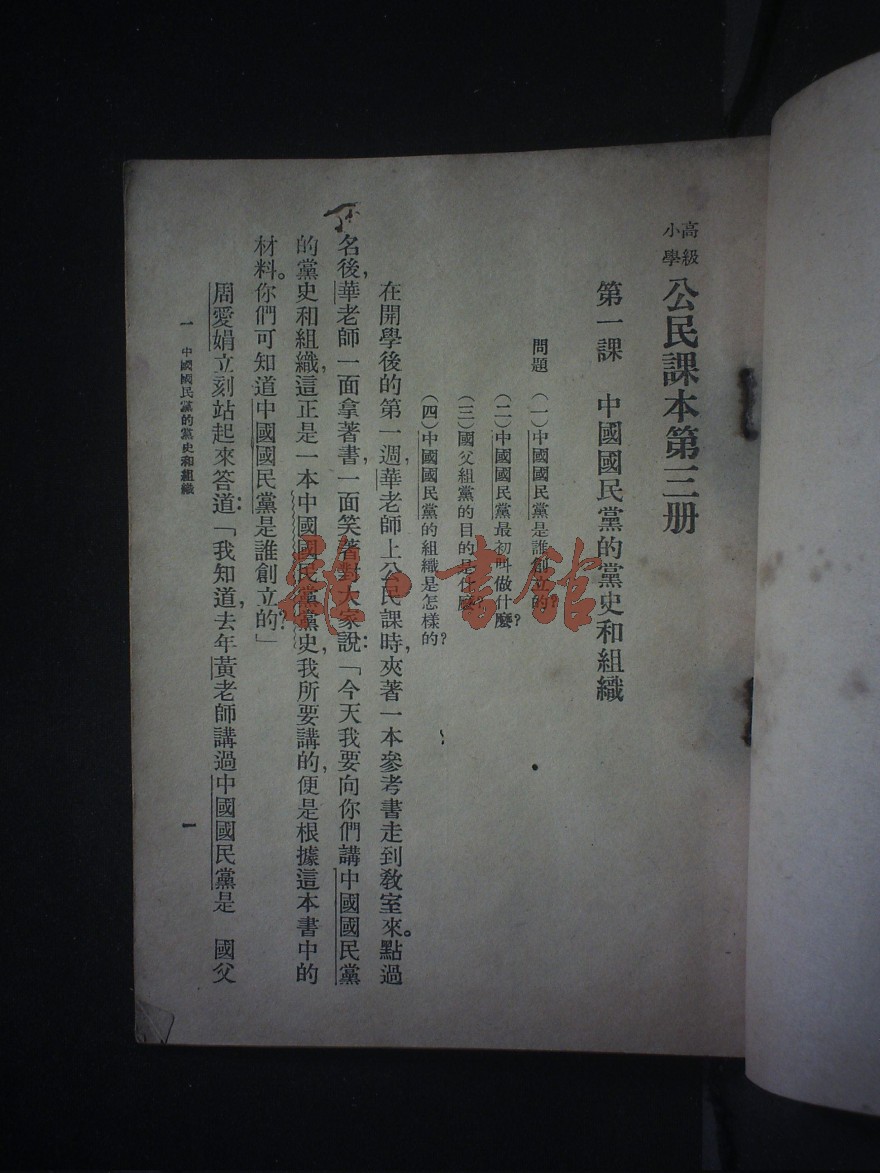 高級小學 公民課本第三册
第一課　中國國民黨的黨史和組織
問題　（一）中國國民黨是誰創立的？
（二）中國國民黨最初叫做什麼？
（三）國父組黨的目的是什麼？
（四）中國國民黨的組織是怎樣的？
在開學後的第一週，華老師上公民課時，夾著一本參考書走到教室來。點過
名後，華老師一面拿著書，一面笑著對大家說：「今天我要向你們講中國國民黨
的黨史和組織，這正是一本中國國民黨黨史，我所要講的，便是根據這本書中的
材料。你們可知道中國國民黨是誰創立的？」
周愛娟立刻站起來答道：「我知道，去年黃老師講過中國國民黨是　國父
一　中國國民黨的黨史和組織
一
雜·書館